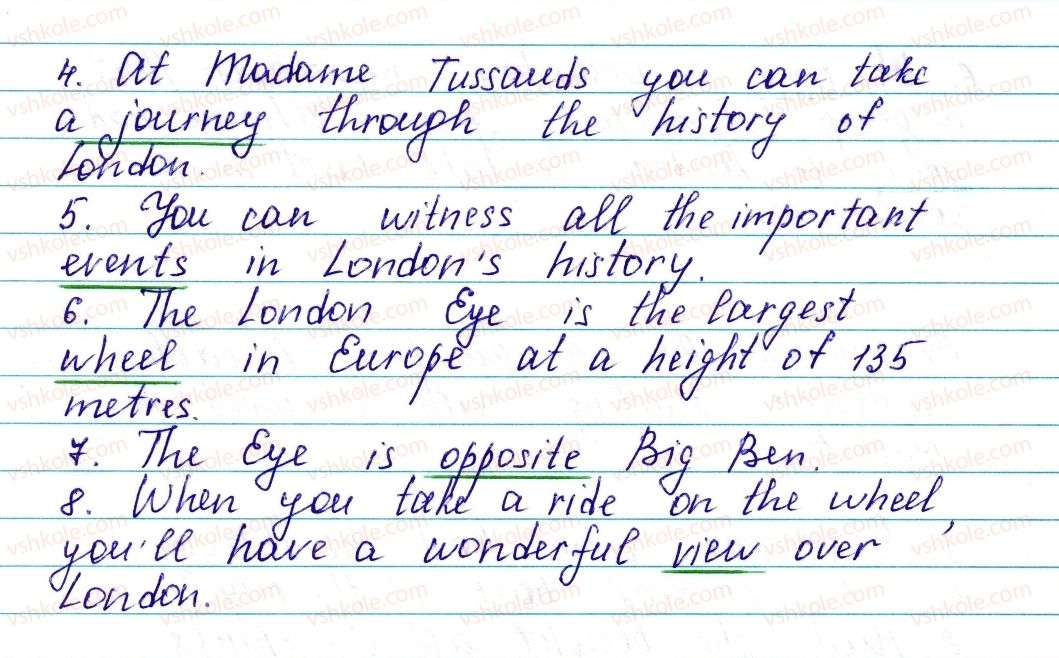 4. At Madame Tussauds you can take
a journey through the history of
London.
5. You can witness all the important
events in London's history.
6. The London Eye is the largest
wheel in Europe at a height of 135
metres.
7. The Eye is opposite Big Ben.
8. When you take a ride on the wheel,
you'll have a wonderful view over
London.